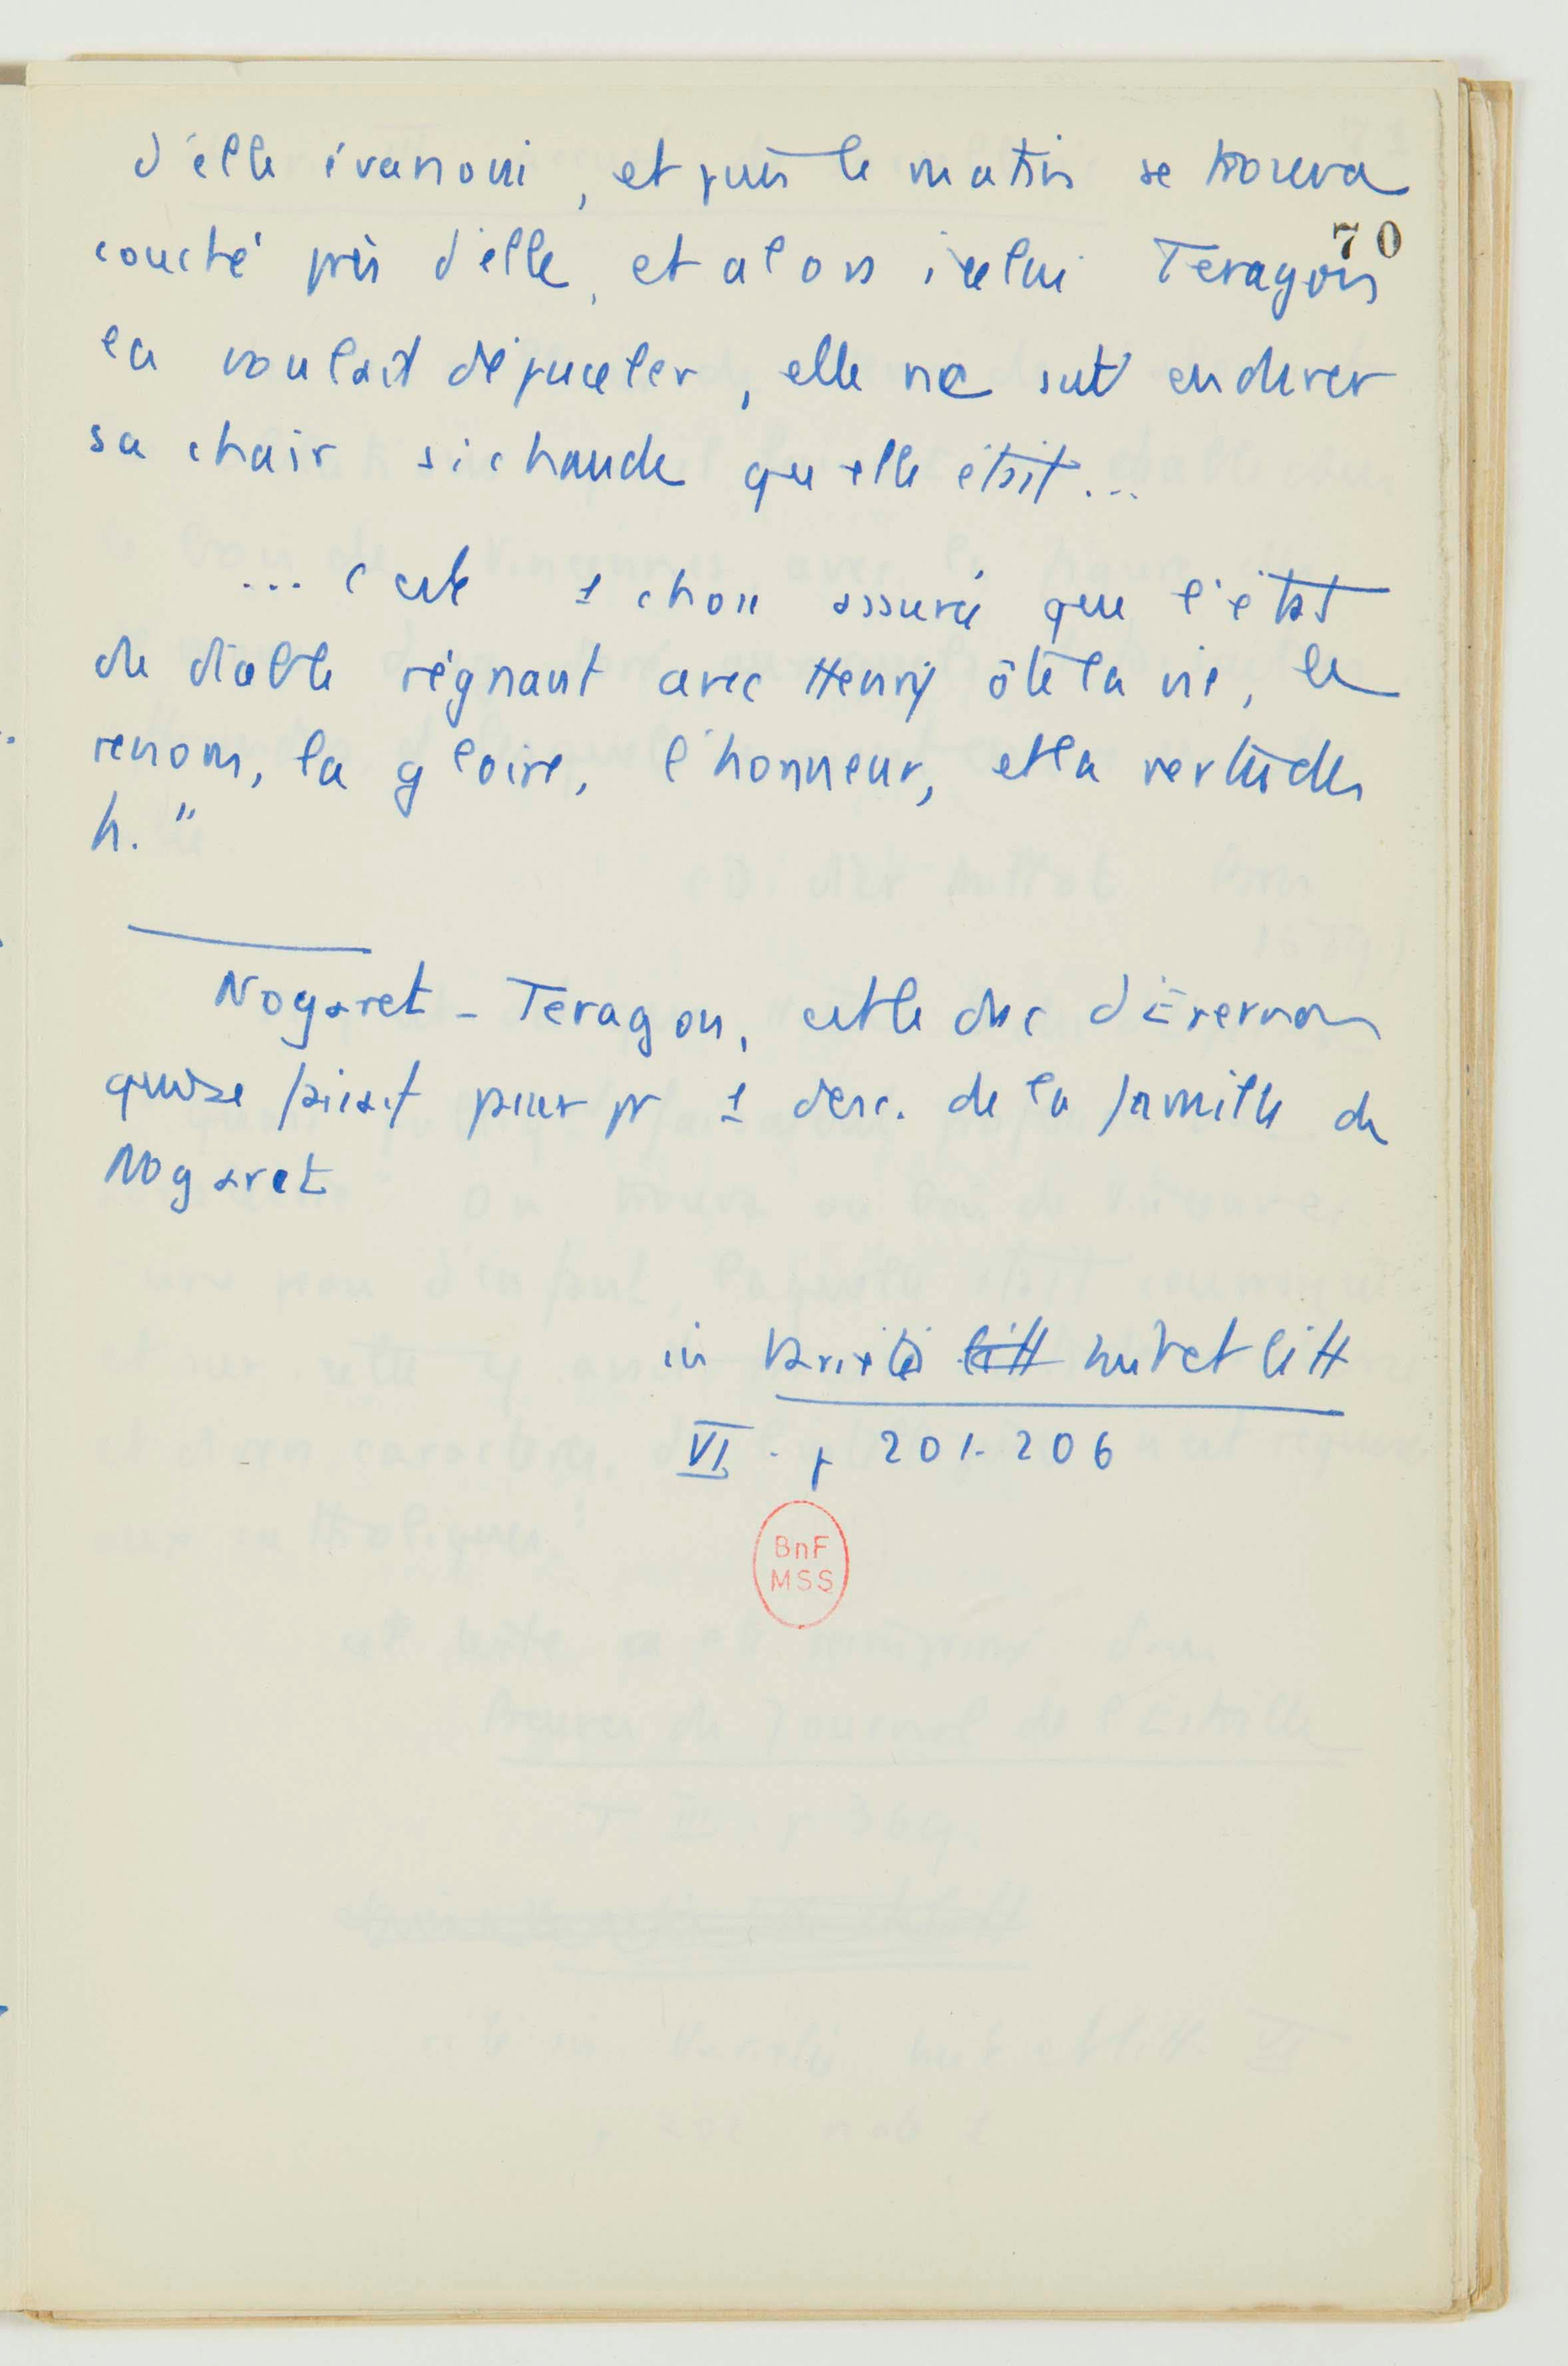 d'elle évanoui, et puis le matin se trouva
70
couché près d'elle, et alors icelui Teragon
la voulait dépuceler, elle ne sut endurer
sa chair si chaude qu'elle était...
... c'est 1 chose assurée que l'état
de diable régnant avec Henry ôte la vie, le
renom, la gloire, l'honneur, et la vertu des
h. "
Nogaret - Teragon, c'est le duc d'Épernon
qui se faisait passer pr 1 desc. de la famille de
Nogaret
in Variétés litt hist et litt
VI. p 201-206
BnF
MSS